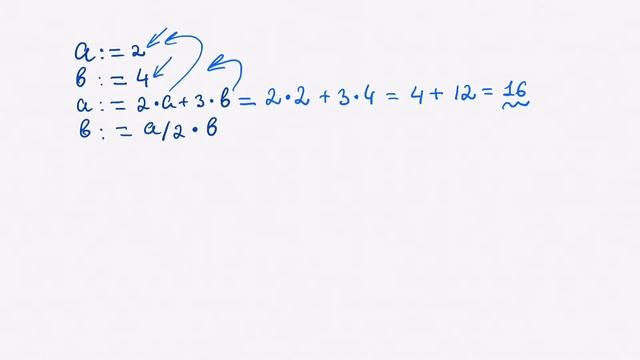 a := 2
b := 4
a := 2·a+3·b = 2·2 + 3·4 = 4 + 12 = 16
b := a/2·b